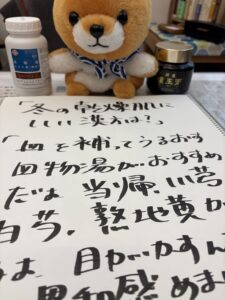 「冬の乾燥肌に
いい漢方は?」
「血を補ってうるおす
四物湯がおすすめ
だよ 当帰、川芎
白芍、熟地黄が
目がかすん
和感 めま